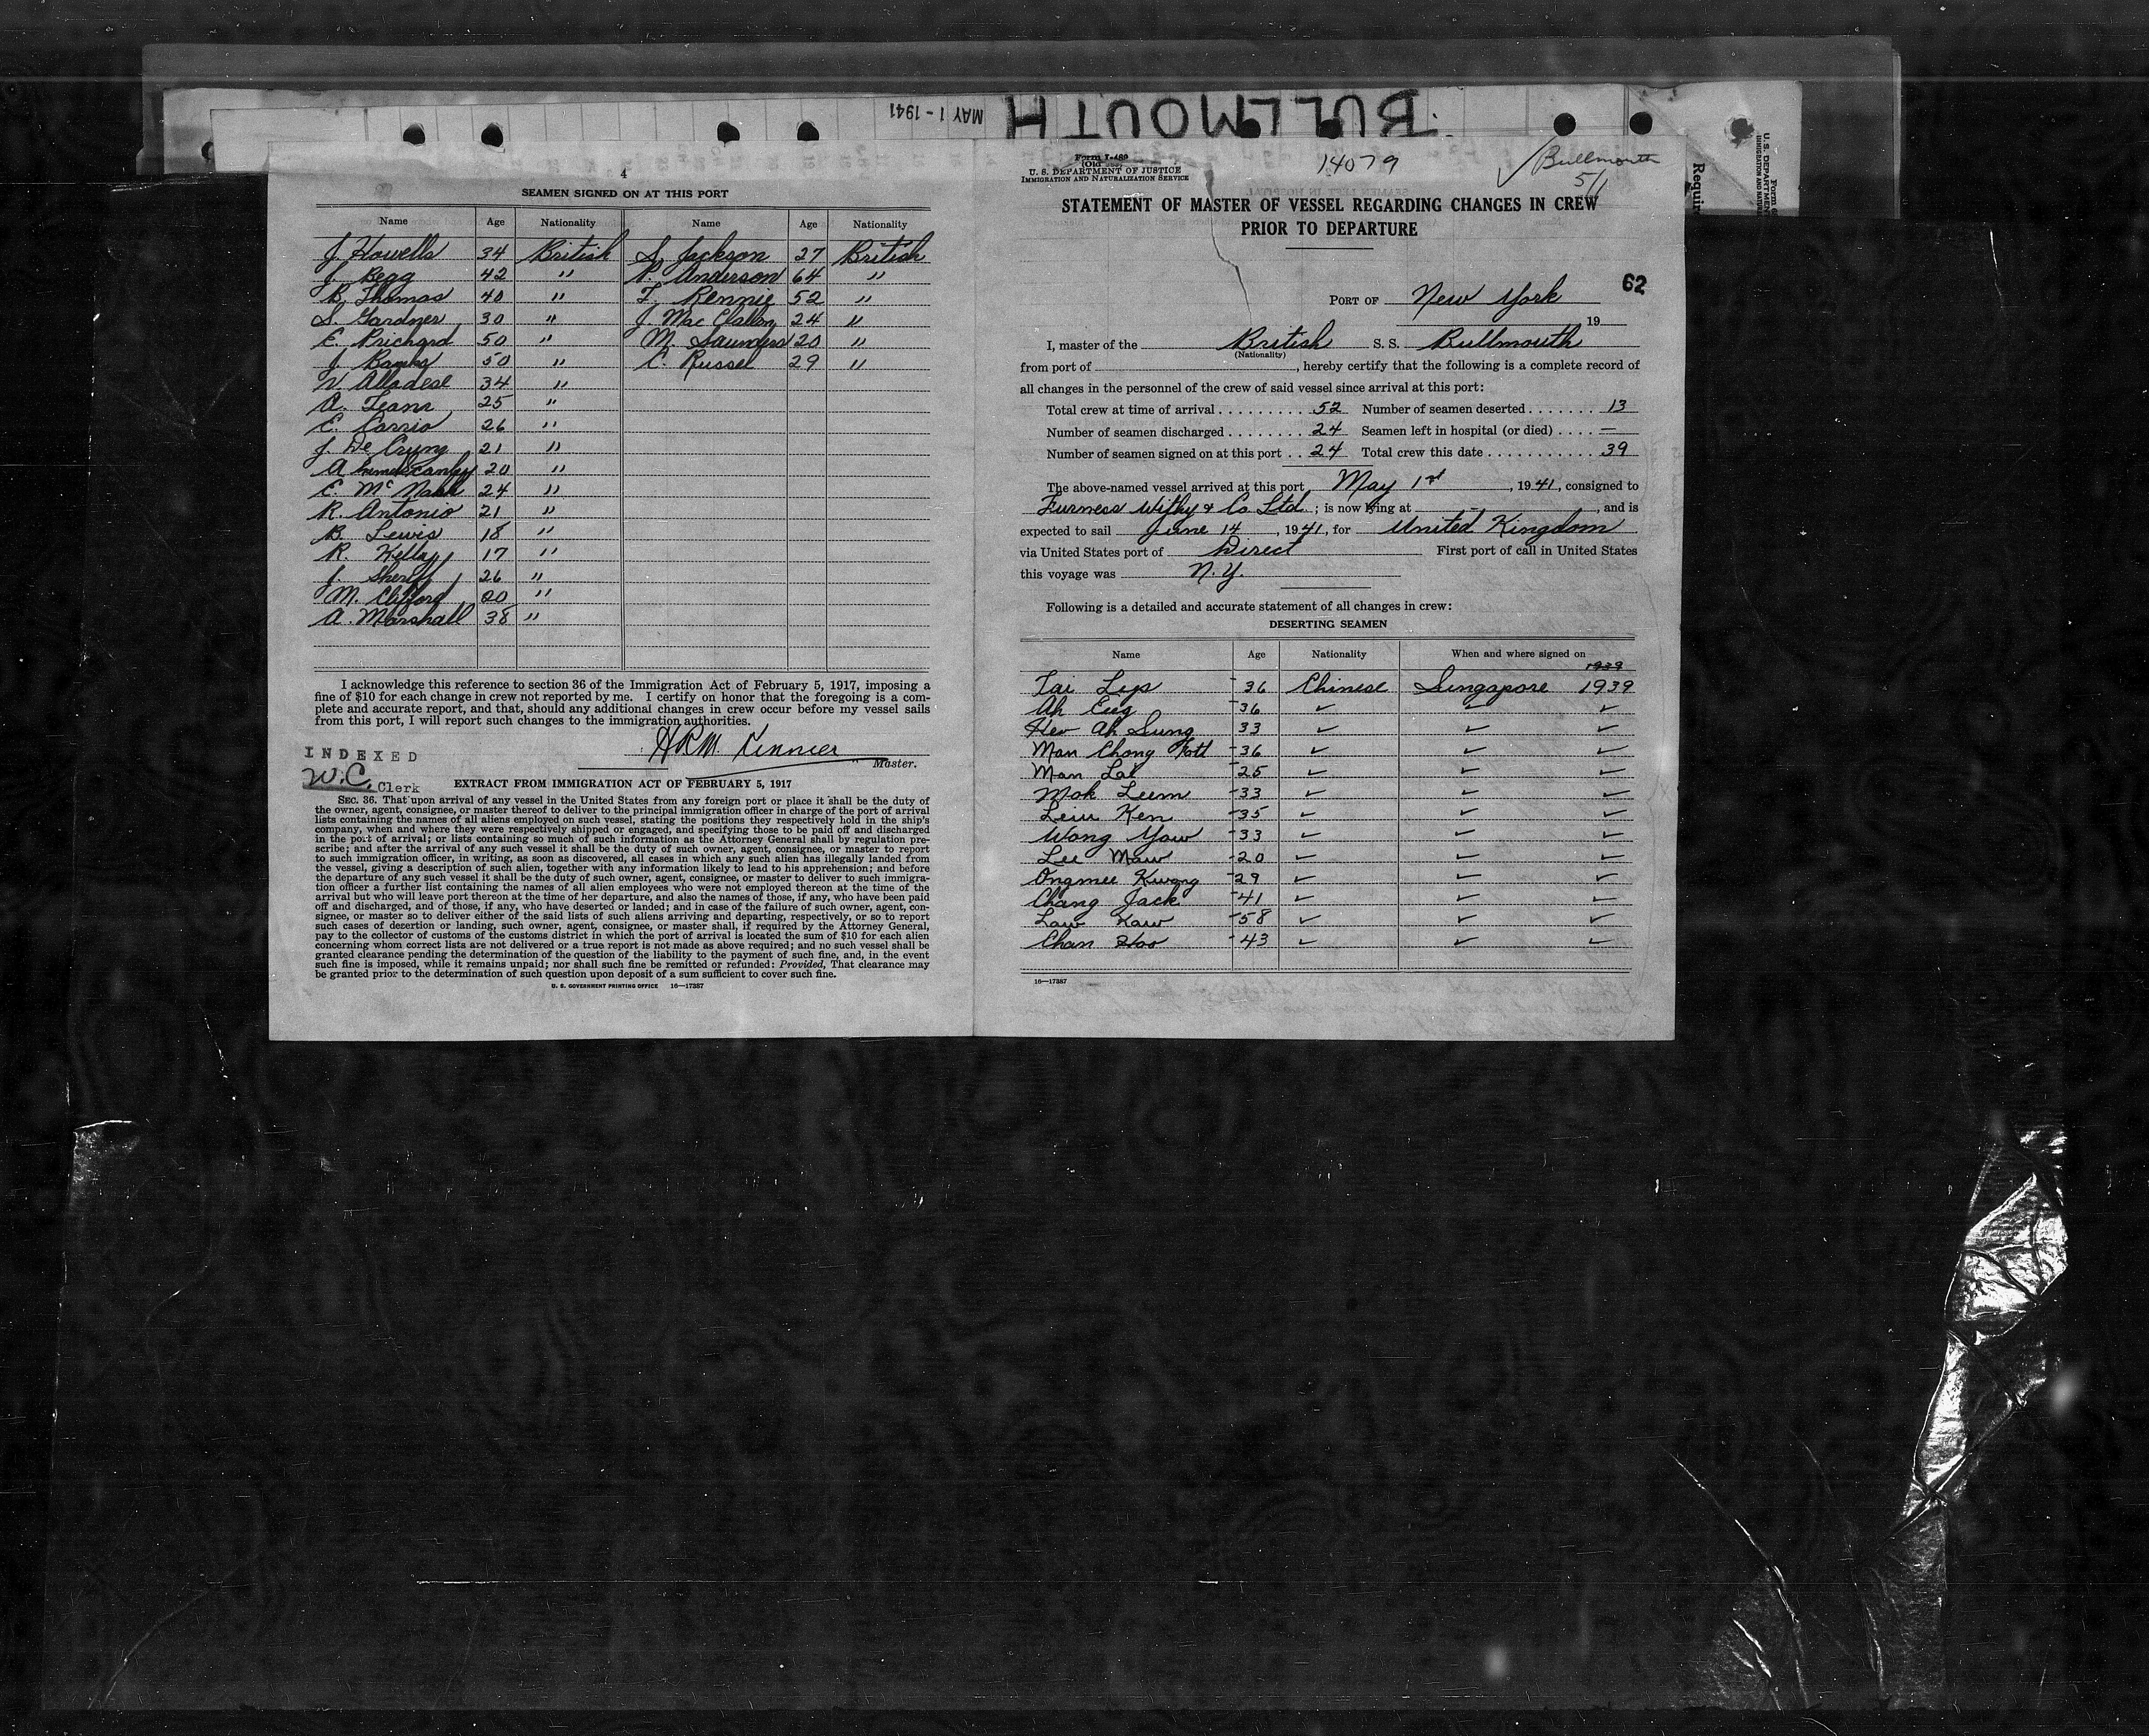 BULLMOUTH
MAY 1 - 1941
4
SEAMEN SIGNED ON AT THIS PORT
Name Age Nationality Name Age Nationality
J. Howells 34 British S. Jackson 27 British
J. Begg 42 " P. Anderson 64 "
B. Thomas 40 " F. Rennie 52 "
S. Gardner 30 " J. Mac Clallan 24 "
E. Prichard 50 " M. Saunders 20 "
J. Banks 50 " C. Russel 29 "
V. Alladese 34 "
A. Jeans 25 "
E. Carrio 26 "
J. De Cruny 21 "
A. 20 "
E. McNabb 24 "
R. Antonio 21 "
B. Lewis 18 "
R. Kellay 17 "
J. Sheriff 26 "
M. Clifford 20 "
A. Marshall 38 "
I acknowledge this reference to section 36 of the Immigration Act of February 5, 1917, imposing a
fine of $10 for each change in crew not reported by me. I certify on honor that the foregoing is a com-
plete and accurate report, and that, should any additional changes in crew occur before my vessel sails
from this port, I will report such changes to the immigration authorities.
H.R.M.
Master.
INDEXED
W.C. Clerk
EXTRACT FROM IMMIGRATION ACT OF FEBRUARY 5, 1917
SEC. 36. That upon arrival of any vessel in the United States from any foreign port or place it shall be the duty of
the owner, agent, consignee, or master thereof to deliver to the principal immigration officer in charge of the port of arrival
lists containing the names of all aliens employed on such vessel, stating the positions they respectively hold in the ship's
company, when and where they were respectively shipped or engaged, and specifying those to be paid off and discharged
in the port of arrival; or lists containing so much of such information as the Attorney General shall by regulation pre-
scribe; and after the arrival of any such vessel it shall be the duty of such owner, agent, consignee, or master to report
to such immigration officer, in writing, as soon as discovered, all cases in which any such alien has illegally landed from
the vessel, giving a description of such alien, together with any information likely to lead to his apprehension; and before
the departure of any such vessel it shall be the duty of such owner, agent, consignee, or master to deliver to such immigra-
tion officer a further list containing the names of all alien employees who were not employed thereon at the time of the
arrival but who will leave port thereon at the time of her departure, and also the names of those, if any, who have been paid
off and discharged, and of those, if any, who have deserted or landed; and in case of the failure of such owner, agent, con-
signee, or master so to deliver either of the said lists of such aliens arriving and departing, respectively, or so to report
such cases of desertion or landing, such owner, agent, consignee, or master shall, if required by the Attorney General,
pay to the collector of customs of the customs district in which the port of arrival is located the sum of $10 for each alien
concerning whom correct lists are not delivered or a true report is not made as above required; and no such vessel shall be
granted clearance pending the determination of the question of the liability to the payment of such fine, and, in the event
such fine is imposed, while it remains unpaid; nor shall such fine be remitted or refunded: Provided, That clearance may
be granted prior to the determination of such question upon deposit of a sum sufficient to cover such fine.
U. S. GOVERNMENT PRINTING OFFICE 16—17387
Form I-489
(Old
U. S. DEPARTMENT OF JUSTICE
IMMIGRATION AND NATURALIZATION SERVICE
14079
✓ Bullmouth
5/1
STATEMENT OF MASTER OF VESSEL REGARDING CHANGES IN CREW
PRIOR TO DEPARTURE
62
PORT OF New York
19
I, master of the British S. S. Bullmouth
(Nationality)
from port of , hereby certify that the following is a complete record of
all changes in the personnel of the crew of said vessel since arrival at this port:
Total crew at time of arrival . . . . . . . . . . 52 Number of seamen deserted . . . . . . . 13
Number of seamen discharged . . . . . . . . 24 Seamen left in hospital (or died) . . . . —
Number of seamen signed on at this port . . 24 Total crew this date . . . . . . . . . . . . 39
The above-named vessel arrived at this port May 1st, 1941, consigned to
Furness Withy & Co. Ltd. ; is now lying at , and is
expected to sail June 14, 1941, for United Kingdom
via United States port of Direct First port of call in United States
this voyage was N.Y.
Following is a detailed and accurate statement of all changes in crew:
DESERTING SEAMEN
Name Age Nationality When and where signed on
1939
Tai Lips 36 Chinese Singapore 1939
Ah Eng 36 ✓ ✓ ✓
Hev Ah Sung 33 ✓ ✓ ✓
Man Chong Fott 36 ✓ ✓ ✓
Man Lal 25 ✓ ✓ ✓
Mok Leem 33 ✓ ✓ ✓
Leiu Ken 35 ✓ ✓ ✓
Wong Yow 33 ✓ ✓ ✓
Lee Maw 20 ✓ ✓ ✓
Ongmee Kwong 29 ✓ ✓ ✓
Chang Jack 41 ✓ ✓ ✓
Law Kaw 58 ✓ ✓ ✓
Chan Hoo 43 ✓ ✓ ✓
16—17387